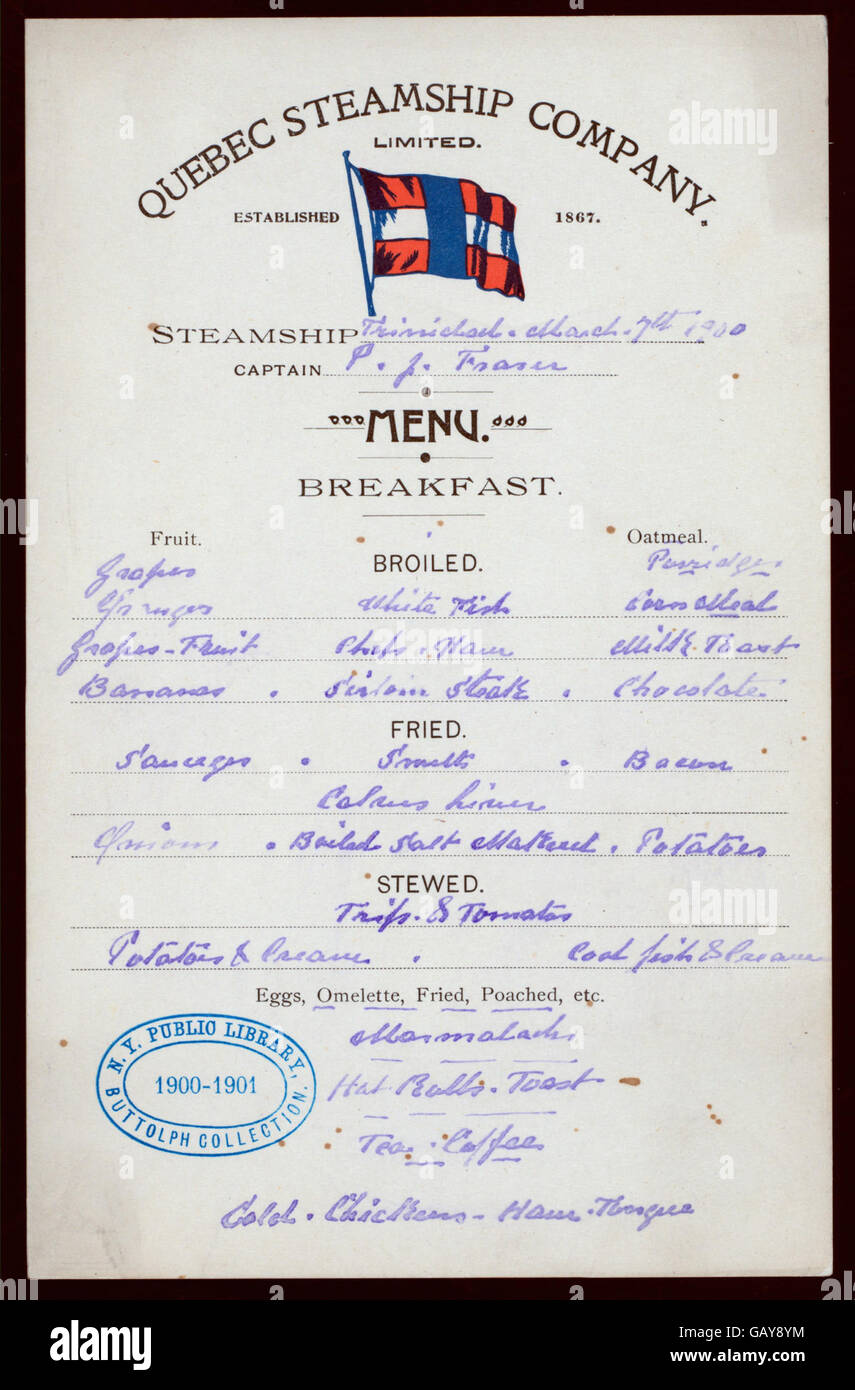 QUEBEC STEAMSHIP COMPANY.
LIMITED.
ESTABLISHED 1867.
STEAMSHIP Trinidad. March. 7th 1900
CAPTAIN P. J. Fraser
MENU.
BREAKFAST.
Fruit. Oatmeal.
Grapes BROILED. Porridge
Oranges White Fish Corn Meal
Grapes-Fruit Chops. Ham Milk Toast
Bananas . Sirloin Steak . Chocolate.
FRIED.
Sausages . Smelts . Bacon
Calves Liver
Onions . Boiled Salt Makerel . Potatoes
STEWED.
Trips. & Tomatos
Potatoes & Cream . Cod fish & Cream
Eggs, Omelette, Fried, Poached, etc.
Marmalade
N. Y. PUBLIC LIBRARY,
1900-1901
BUTTOLPH COLLECTION.
Hot Rolls. Toast
Tea. Coffee
Cold. Chickens - Ham. Tongue
alamy
a
alamy
www.alamy.com
GAY8YM